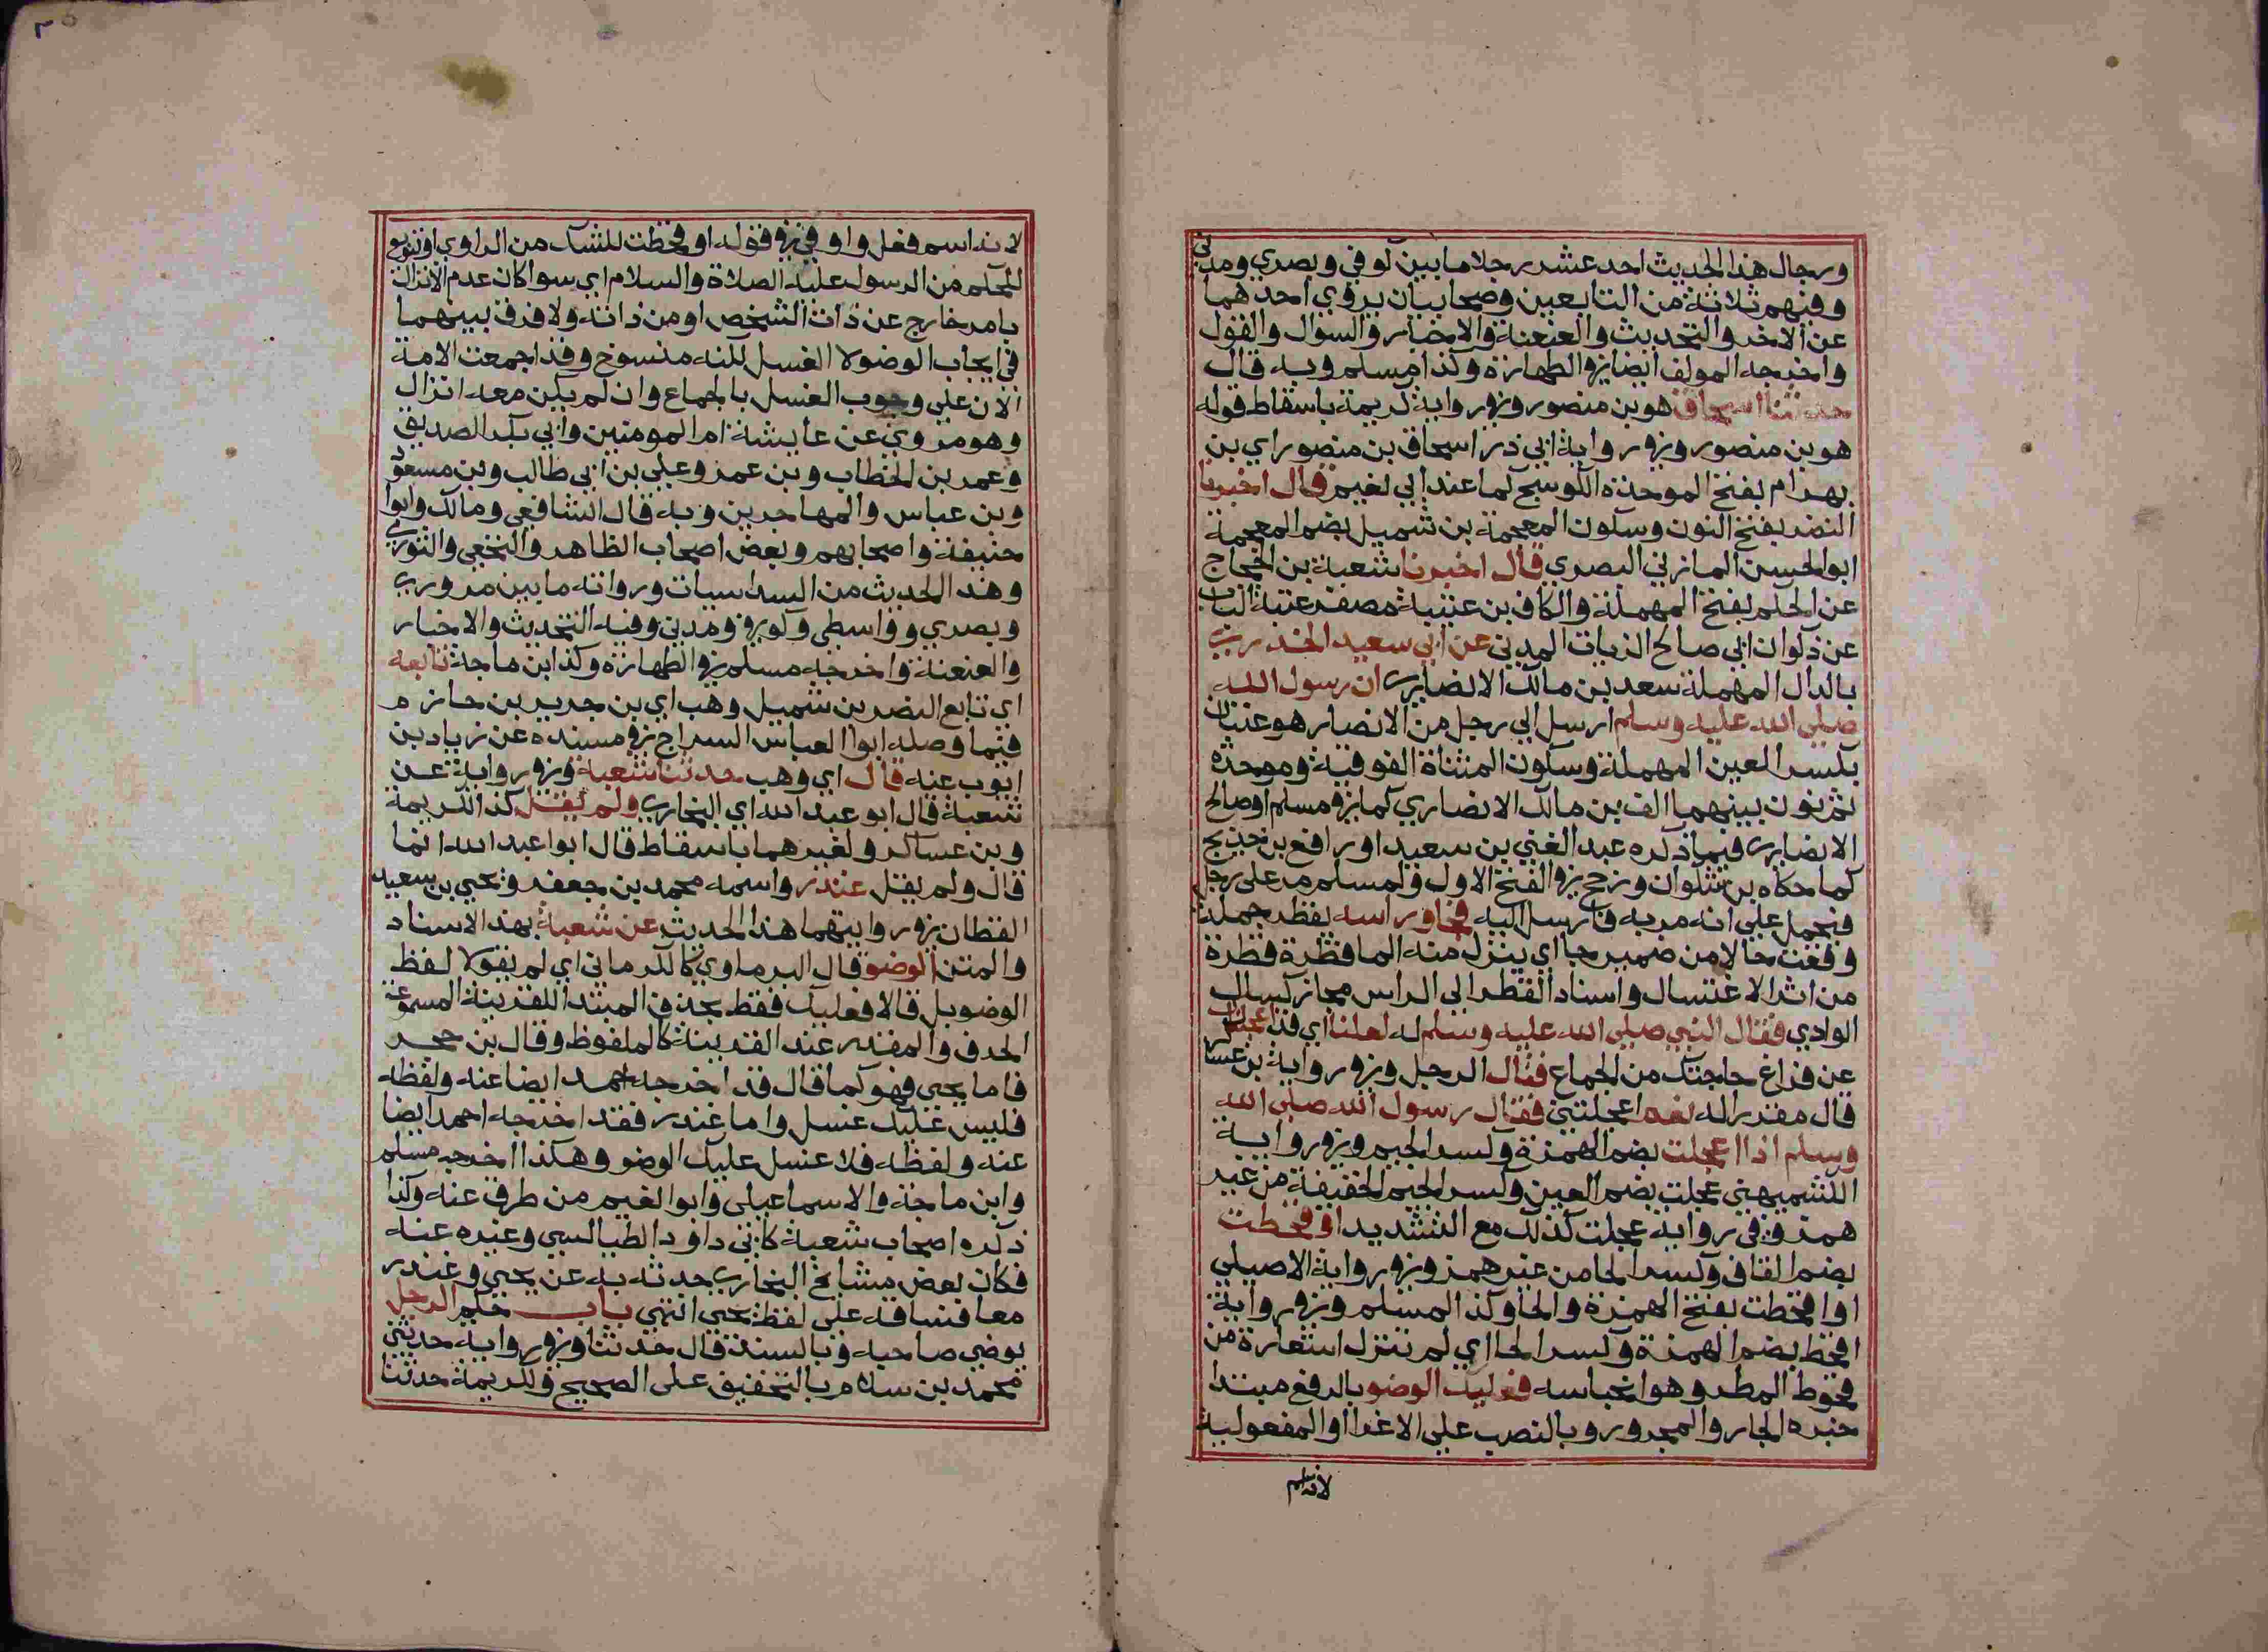 ورجال هذا الحديث احد عشر رجلا ما بين كوفي وبصري ومدني
وفيهم ثلاثة من التابعين وصحابيان يروي احدهما
عن الاخر والتحديث والعنعنة والاخبار والسوال والقول
واخرجه المولف ايضا في الطهارة وكذا مسلم وبه قال
حدثنا اسحاق هو بن منصور وفي رواية كريمة باسقاط قوله
هو بن منصور وفي رواية ابي ذر اسحاق بن منصور اي بن
بهرام بفتح الموحدة الكوسج كما عند ابي نعيم قال اخبرنا
النضر بفتح النون وسكون المعجمة بن شميل بضم المعجمة
ابو الحسن المازني البصري قال اخبرنا شعبة بن الحجاج
عن الحكم بفتح المهملة والكاف بن عتيبة مصغر عتبة الباب
عن ذكوان ابي صالح الزيات المدني عن ابي سعيد الخدري
بالدال المهملة سعد بن مالك الانصاري ان رسول الله
صلي الله عليه وسلم ارسل الي رجل من الانصار هو عتبان
بكسر العين المهملة وسكون المثناة الفوقية وموحدة
ثم نون بينهما الف بن مالك الانصاري كما في مسلم او صالح
الانصاري فيما ذكره عبد الغني بن سعيد او رافع بن خديج
كما حكاه بن بشكوان ورجح في الفتح الاول ولمسلم مر على رجل
فيحمل علي انه مر به فارسل اليه فجا وراسه يقطر جملة
وقعت حالا من ضمير جا اي ينزل منه الما قطرة قطرة
من اثر الاغتسال واسناد القطر الي الراس مجاز كسال
الوادي فقال النبي صلي الله عليه وسلم له لعلنا اي قد اعجلناك
عن فراغ حاجتك من الجماع فقال الرجل وفي رواية بن عساكر
قال مقدرا له نعم اعجلتني فقال رسول الله صلي الله
وسلم اذا اعجلت بضم الهمزة وكسر الجيم وفي رواية
الكشميهني عجلت بضم العين وكسر الجيم الخفيفة من غير
همز وفي رواية عجلت كذلك مع التشديد او قحطت
بضم القاف وكسر الحا من غير همز وفي رواية الاصيلي
او اقحطت بفتح الهمزة والحا وكذا لمسلم وفي رواية
اقحط بضم الهمزة وكسر الحا اي لم تنزل استعارة من
قحوط المطر وهو انحباسه فعليك الوضو بالرفع مبتدا
خبره الجار والمجرور وبالنصب علي الاغرا او المفعولية
لانه اسم
لانه اسم فعل واو في قوله او قحطت للشك من الراوي او تنويع
الحكم من الرسول عليه الصلاة والسلام اي سوا كان عدم الانزال
بامر خارج عن ذات الشخص او من ذاته ولا فرق بينهما
في ايجاب الوضو لا الغسل لكنه منسوخ وقد اجمعت الامة
الان علي وجوب الغسل بالجماع وان لم يكن معه انزال
وهو مروي عن عايشة ام المومنين وابي بكر الصديق
وعمر بن الخطاب وبن عمر وعلي بن ابي طالب وبن مسعود
وبن عباس والمهاجرين وبه قال الشافعي ومالك وابوا
حنيفة واصحابهم وبعض اصحاب الظاهر والنخعي والثوري
وهذا الحديث من السداسيات ورواته ما بين مروزي
وبصري وواسطي وكوفي ومدني وفيه التحديث والاخبار
والعنعنة واخرجه مسلم في الطهارة وكذا ابن ماجة تابعه
اي تابع النضر بن شميل وهب اي بن جرير بن حازم
فيما وصله ابوا العباس السراج في مسنده عن زياد بن
ايوب عنه قال اي وهب حدثنا شعبة وفي رواية عن
شعبة قال ابو عبد الله اي البخاري ولم يقل كذا لكريمة
وبن عساكر ولغيرهما باسقاط قال ابوا عبد الله انما
قال ولم يقل غندر واسمه محمد بن جعفر ويحيي بن سعيد
القطان في روايتهما هذا الحديث عن شعبة بهذا الاسناد
والمتن الوضو قال البرماوي كالكرماني اي لم يقولا لفظ
الوضو بل قالا فعليك فقط بحذف المبتدا للقرينة المسوغة
الحذف والمقدر عند القرينة كالملفوظ وقال بن حجر
فاما يحيي فهو كما قال قد اخرجه احمد ايضا عنه ولفظه
فليس عليك غسل واما غندر فقد اخرجه احمد ايضا
عنه ولفظه فلا غسل عليك الوضو وهكذا اخرجه مسلم
وابن ماجة والاسماعيلي وابوا نعيم من طرق عنه وكذا
ذكره اصحاب شعبة كابي داود الطيالسي وغيره عنه
فكان بعض مشايخ البخاري حدثه به عن يحيي وغندر
معا فساقه علي لفظ يحيي انتهي باب حكم الرجل
يوضي صاحبه وبالسند قال حدثنا وفي رواية حدثني
محمد بن سلام بالتخفيف على الصحيح ولكريمة حدثنا